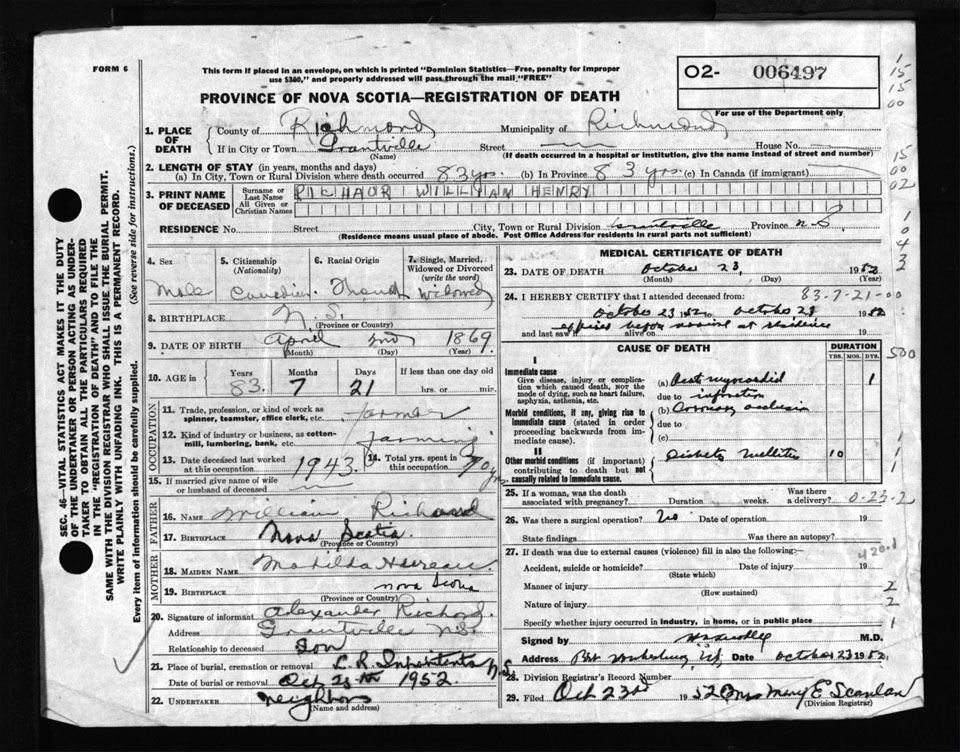 FORM 6
This form if placed in an envelope, on which is printed "Dominion Statistics—Free, penalty for improper
use $300," and properly addressed will pass through the mail "FREE"
O2- 006497
For use of the Department only
PROVINCE OF NOVA SCOTIA—REGISTRATION OF DEATH
1. PLACE OF DEATH
County of Richmond Municipality of Richmond
If in City or Town Grantville Street House No.
(Name) (If death occurred in a hospital or institution, give the name instead of street and number)
2. LENGTH OF STAY (in years, months and days)
(a) In City, Town or Rural Division where death occurred 83 yrs. (b) In Province 83 yrs. (c) In Canada (if immigrant)
3. PRINT NAME OF DECEASED
Surname or Last Name
All Given or Christian Names
WILLIAM HENRY
RESIDENCE No. Street City, Town or Rural Division Grantville Province N.S.
(Residence means usual place of abode. Post Office Address for residents in rural parts not sufficient)
4. Sex
Male
5. Citizenship (Nationality)
Canadian
6. Racial Origin
French
7. Single, Married, Widowed or Divorced (write the word)
Widowed
8. BIRTHPLACE N. S.
(Province or Country)
9. DATE OF BIRTH April 2nd 1869
(Month) (Day) (Year)
10. AGE in Years Months Days If less than one day old
83 7 21 hrs. or min.
OCCUPATION
11. Trade, profession, or kind of work as spinner, teamster, office clerk, etc. farmer
12. Kind of industry or business, as cotton-mill, lumbering, bank, etc. farming
13. Date deceased last worked at this occupation 1943
14. Total yrs. spent in this occupation 70 yrs
15. If married give name of wife or husband of deceased
FATHER
16. NAME William Richard
17. BIRTHPLACE Nova Scotia
(Province or Country)
MOTHER
18. MAIDEN NAME Matilda
19. BIRTHPLACE Nova Scotia
(Province or Country)
20. Signature of informant Alexander Richard
Address Grantville N.S.
Relationship to deceased Son
21. Place of burial, cremation or removal L. R. Inhabitants N.S.
Date of burial or removal Oct 25th 1952
22. UNDERTAKER neighbors
(Name and address)
MEDICAL CERTIFICATE OF DEATH
23. DATE OF DEATH October 23 1952
(Month) (Day) (Year)
24. I HEREBY CERTIFY that I attended deceased from: 83-7-21-00
October 23 1952 to October 23 1952
and last saw h alive on 19
expired before arrival at residence
CAUSE OF DEATH
DURATION
YRS. MOS. DYS.
I
Immediate cause
Give disease, injury or complication which caused death, NOT the mode of dying, such as heart failure, asphyxia, asthenia, etc.
(a) Acute myocardial 1
due to infarction
Morbid conditions, if any, giving rise to immediate cause (stated in order proceeding backwards from immediate cause).
(b) Coronary occlusion
due to
(c)
II
Other morbid conditions (if important) contributing to death but not causally related to immediate cause.
Diabetes Mellitus 10
25. If a woman, was the death associated with pregnancy? Duration weeks. Was there a delivery? 0-23-2
26. Was there a surgical operation? No Date of operation 19
State findings Was there an autopsy?
27. If death was due to external causes (violence) fill in also the following:— 420.1
Accident, suicide or homicide? Date of injury 19
(State which)
Manner of injury
(How sustained)
Nature of injury
Specify whether injury occurred in industry, in home, or in public place
Signed by M.D.
Address Date October 23 1952
28. Division Registrar's Record Number
29. Filed Oct 23rd 1952 Mrs Mary E Scanlan
(Division Registrar)
SEC. 46—VITAL STATISTICS ACT MAKES IT THE DUTY
OF THE UNDERTAKER OR PERSON ACTING AS UNDERTAKER
TO OBTAIN ALL THE PARTICULARS REQUIRED
IN THE "REGISTRATION OF DEATH" AND TO FILE THE
SAME WITH THE DIVISION REGISTRAR WHO SHALL ISSUE THE BURIAL PERMIT.
WRITE PLAINLY WITH UNFADING INK. THIS IS A PERMANENT RECORD.
Every item of information should be carefully supplied. (See reverse side for instructions.)